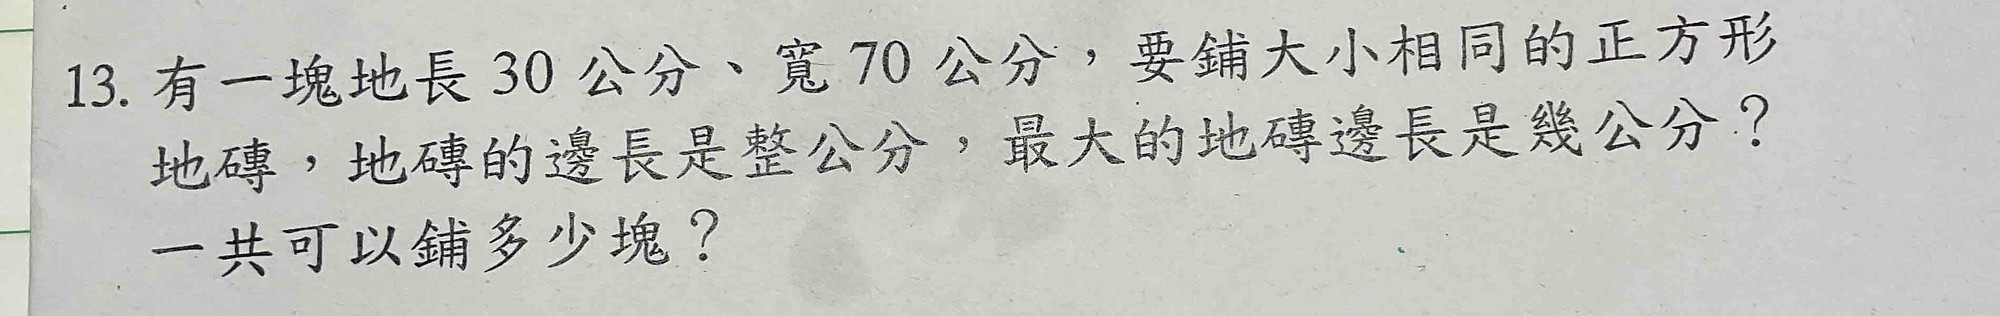 13. 有一塊地長 30 公分、寬 70 公分，要鋪大小相同的正方形
地磚，地磚的邊長是整公分，最大的地磚邊長是幾公分？
一共可以鋪多少塊？